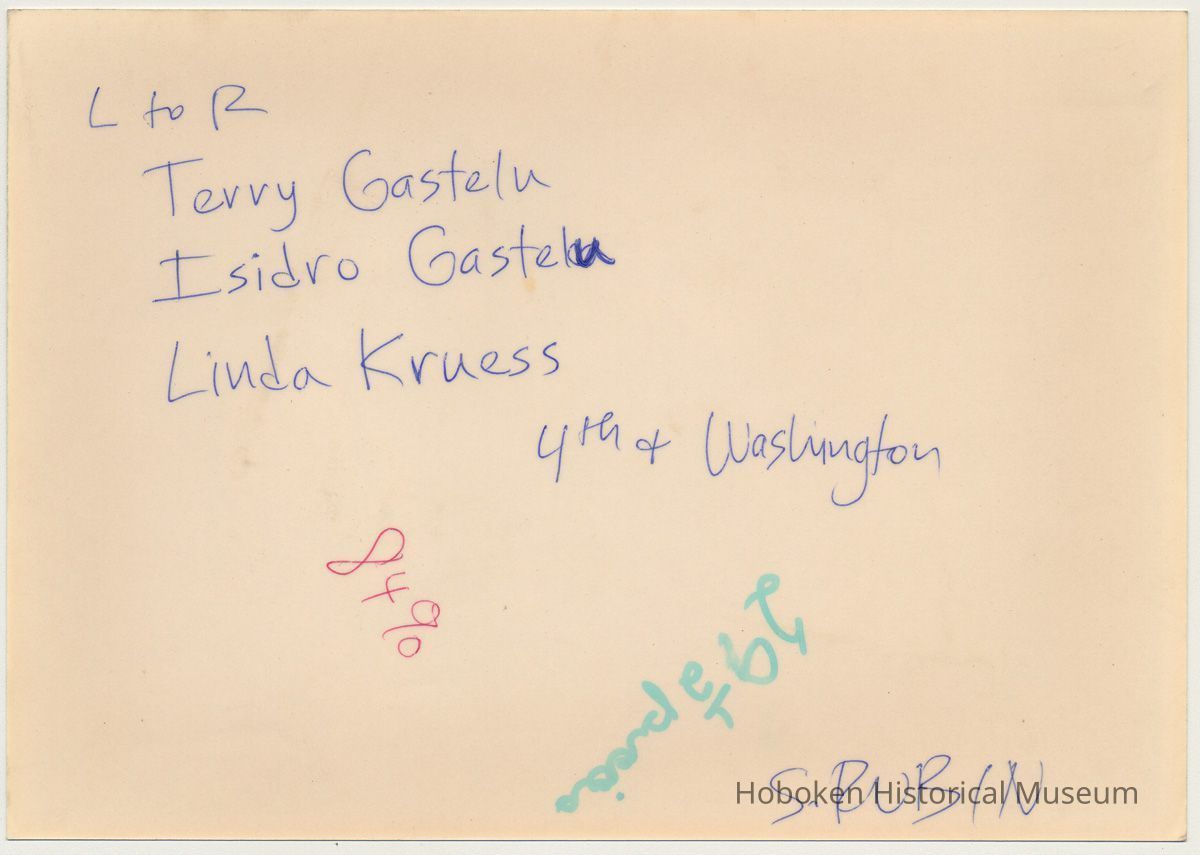 L to R
Terry Gastelu
Isidro Gastelu
Linda Kruess
4th + Washington
84%
S. RUBIN
Hoboken Historical Museum